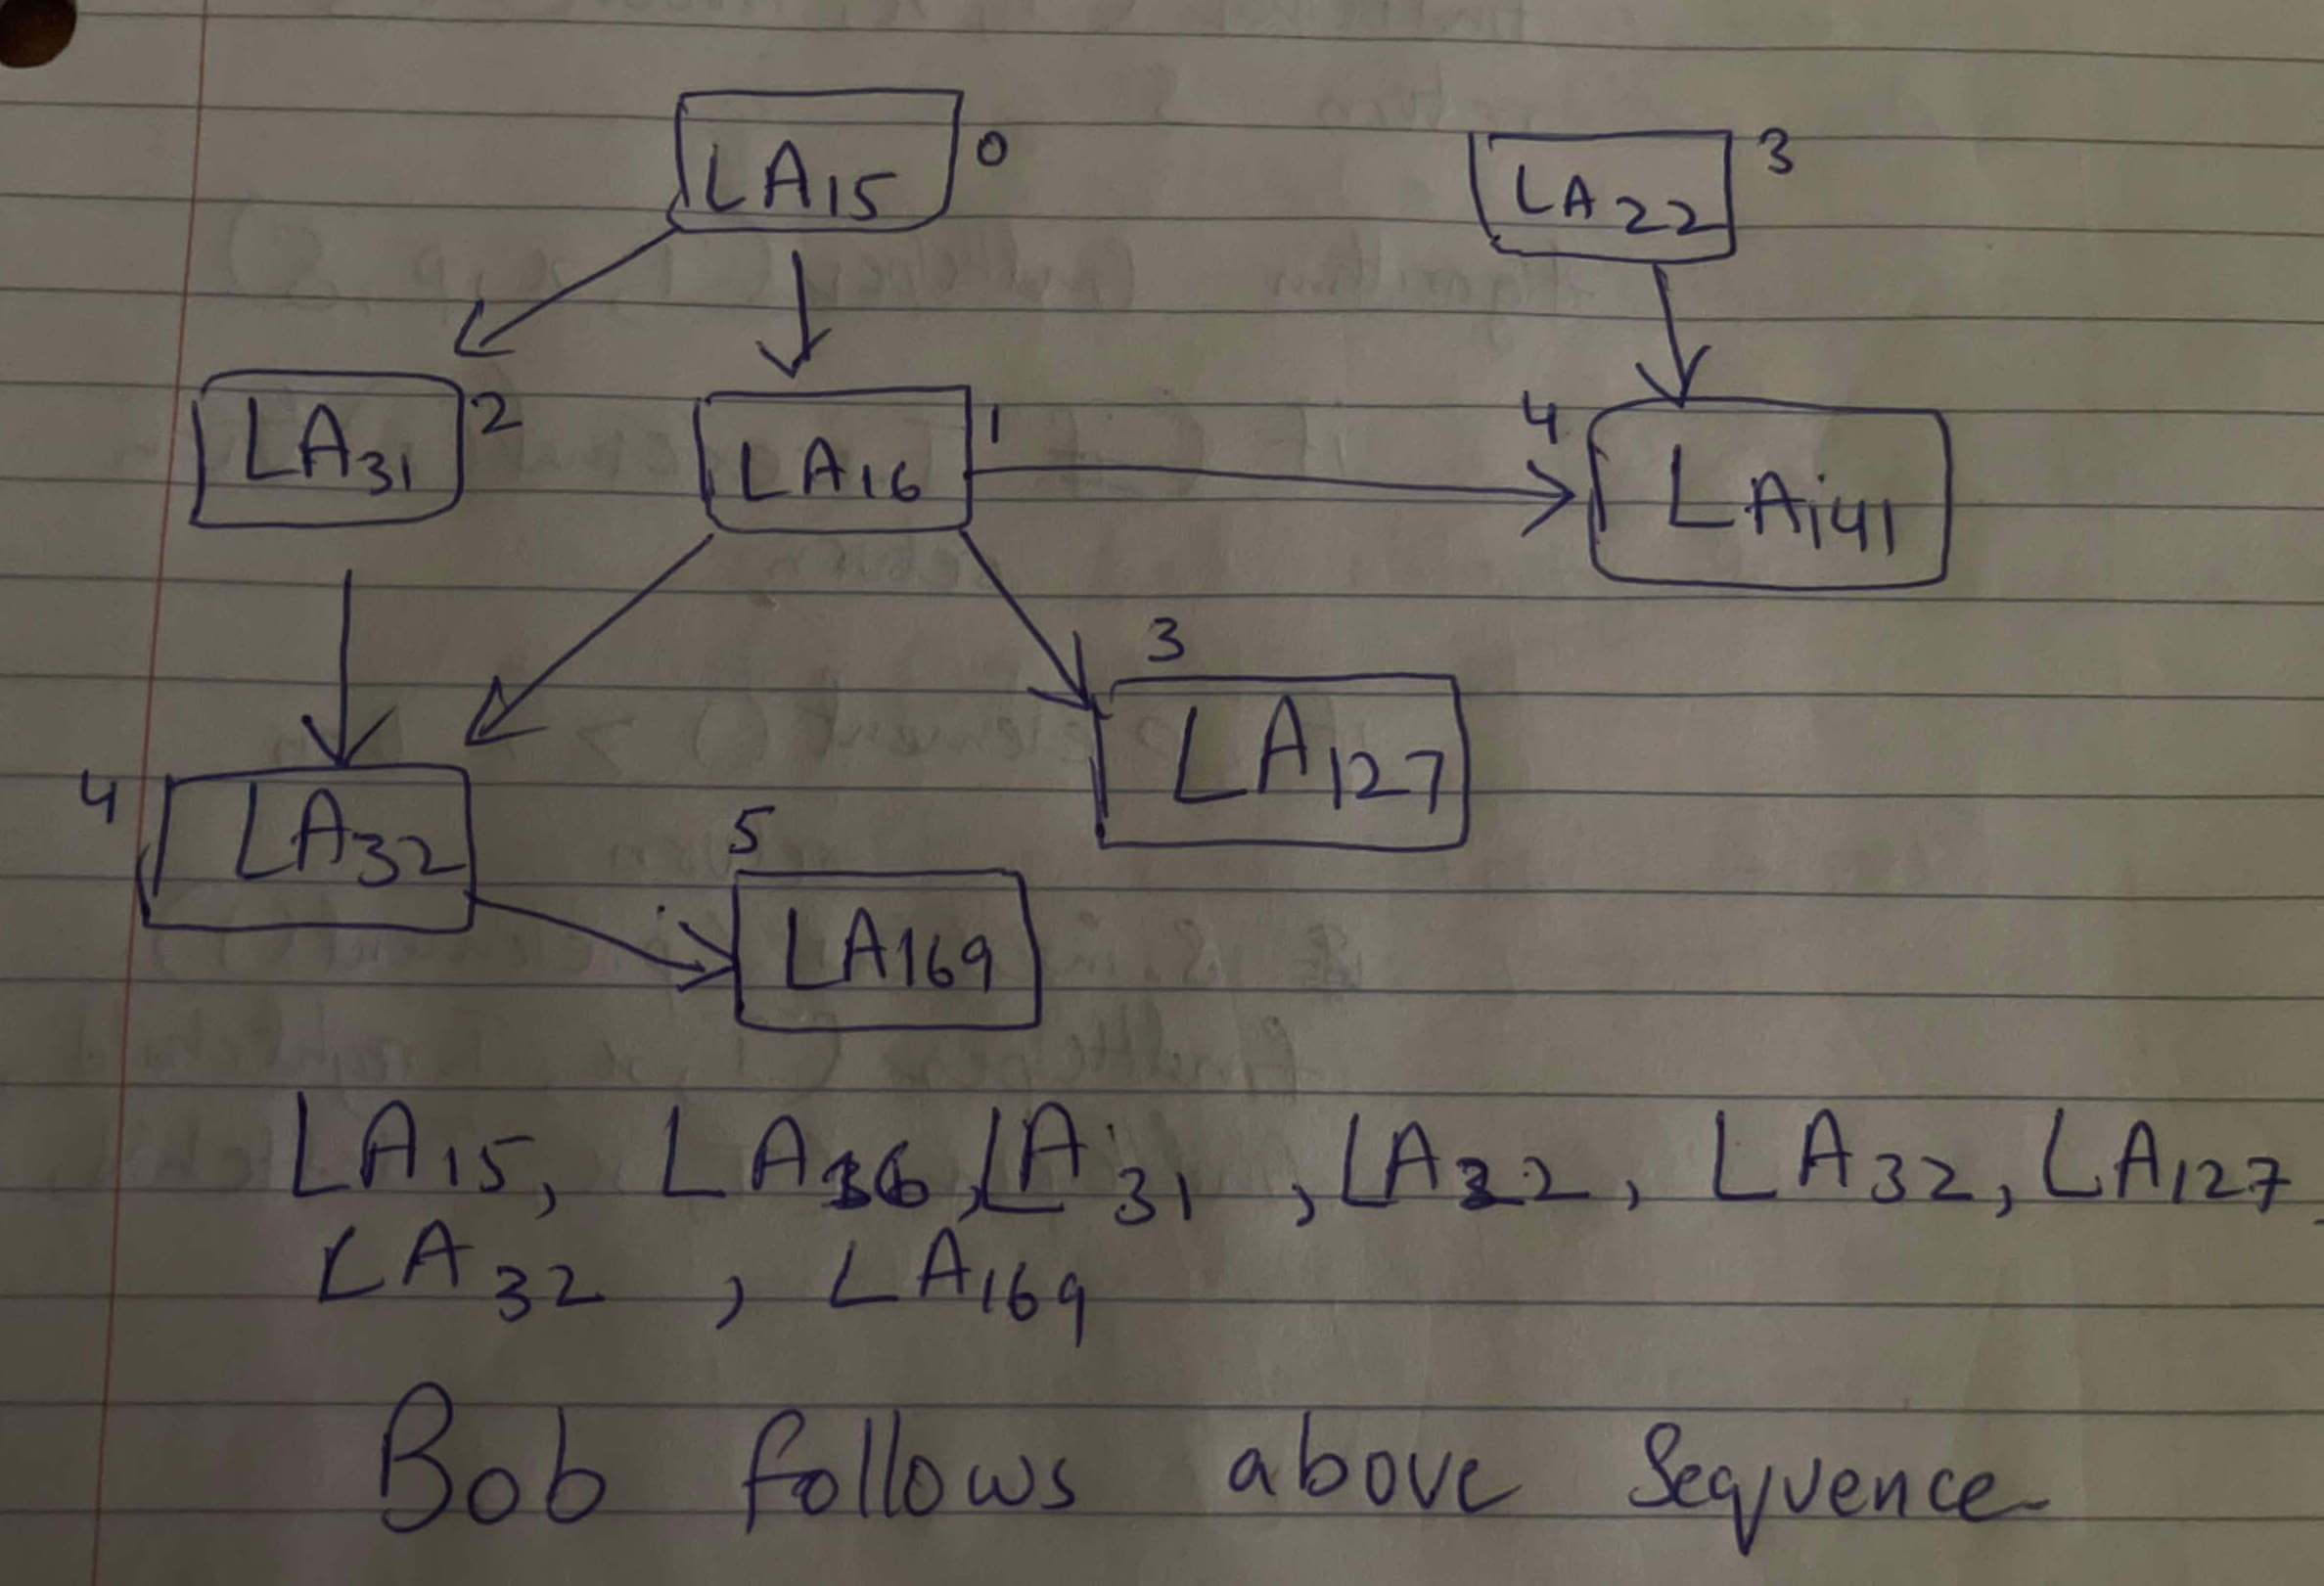 LA15 0
LA22 3
LA31 2
LA16 1
4 LA141
3
LA127
4 LA32
5
LA169
LA15, LA16, LA31, LA22, LA32, LA127
LA32, LA169
Bob follows above Sequence